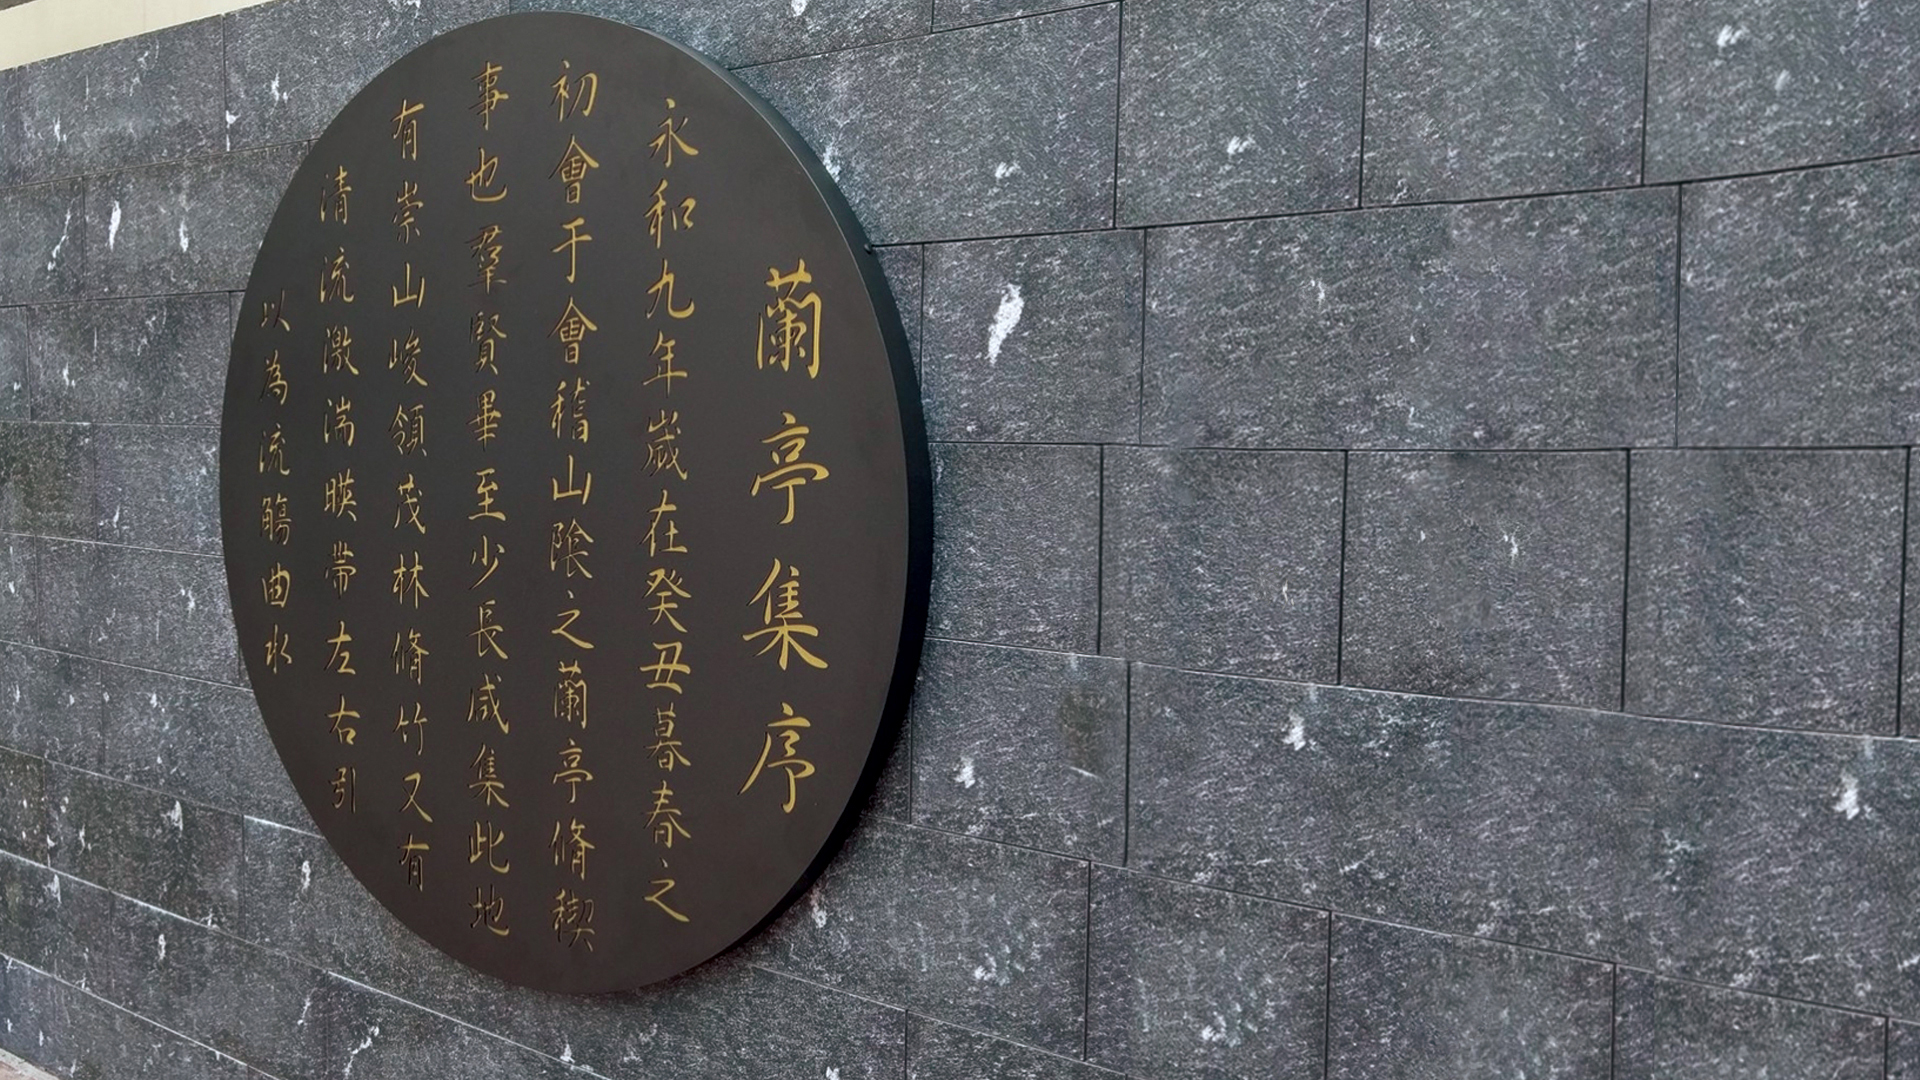 蘭亭集序
永和九年歲在癸丑暮春之
初會于會稽山陰之蘭亭脩禊
事也羣賢畢至少長咸集此地
有崇山峻領茂林脩竹又有
清流激湍暎帶左右引
以為流觴曲水